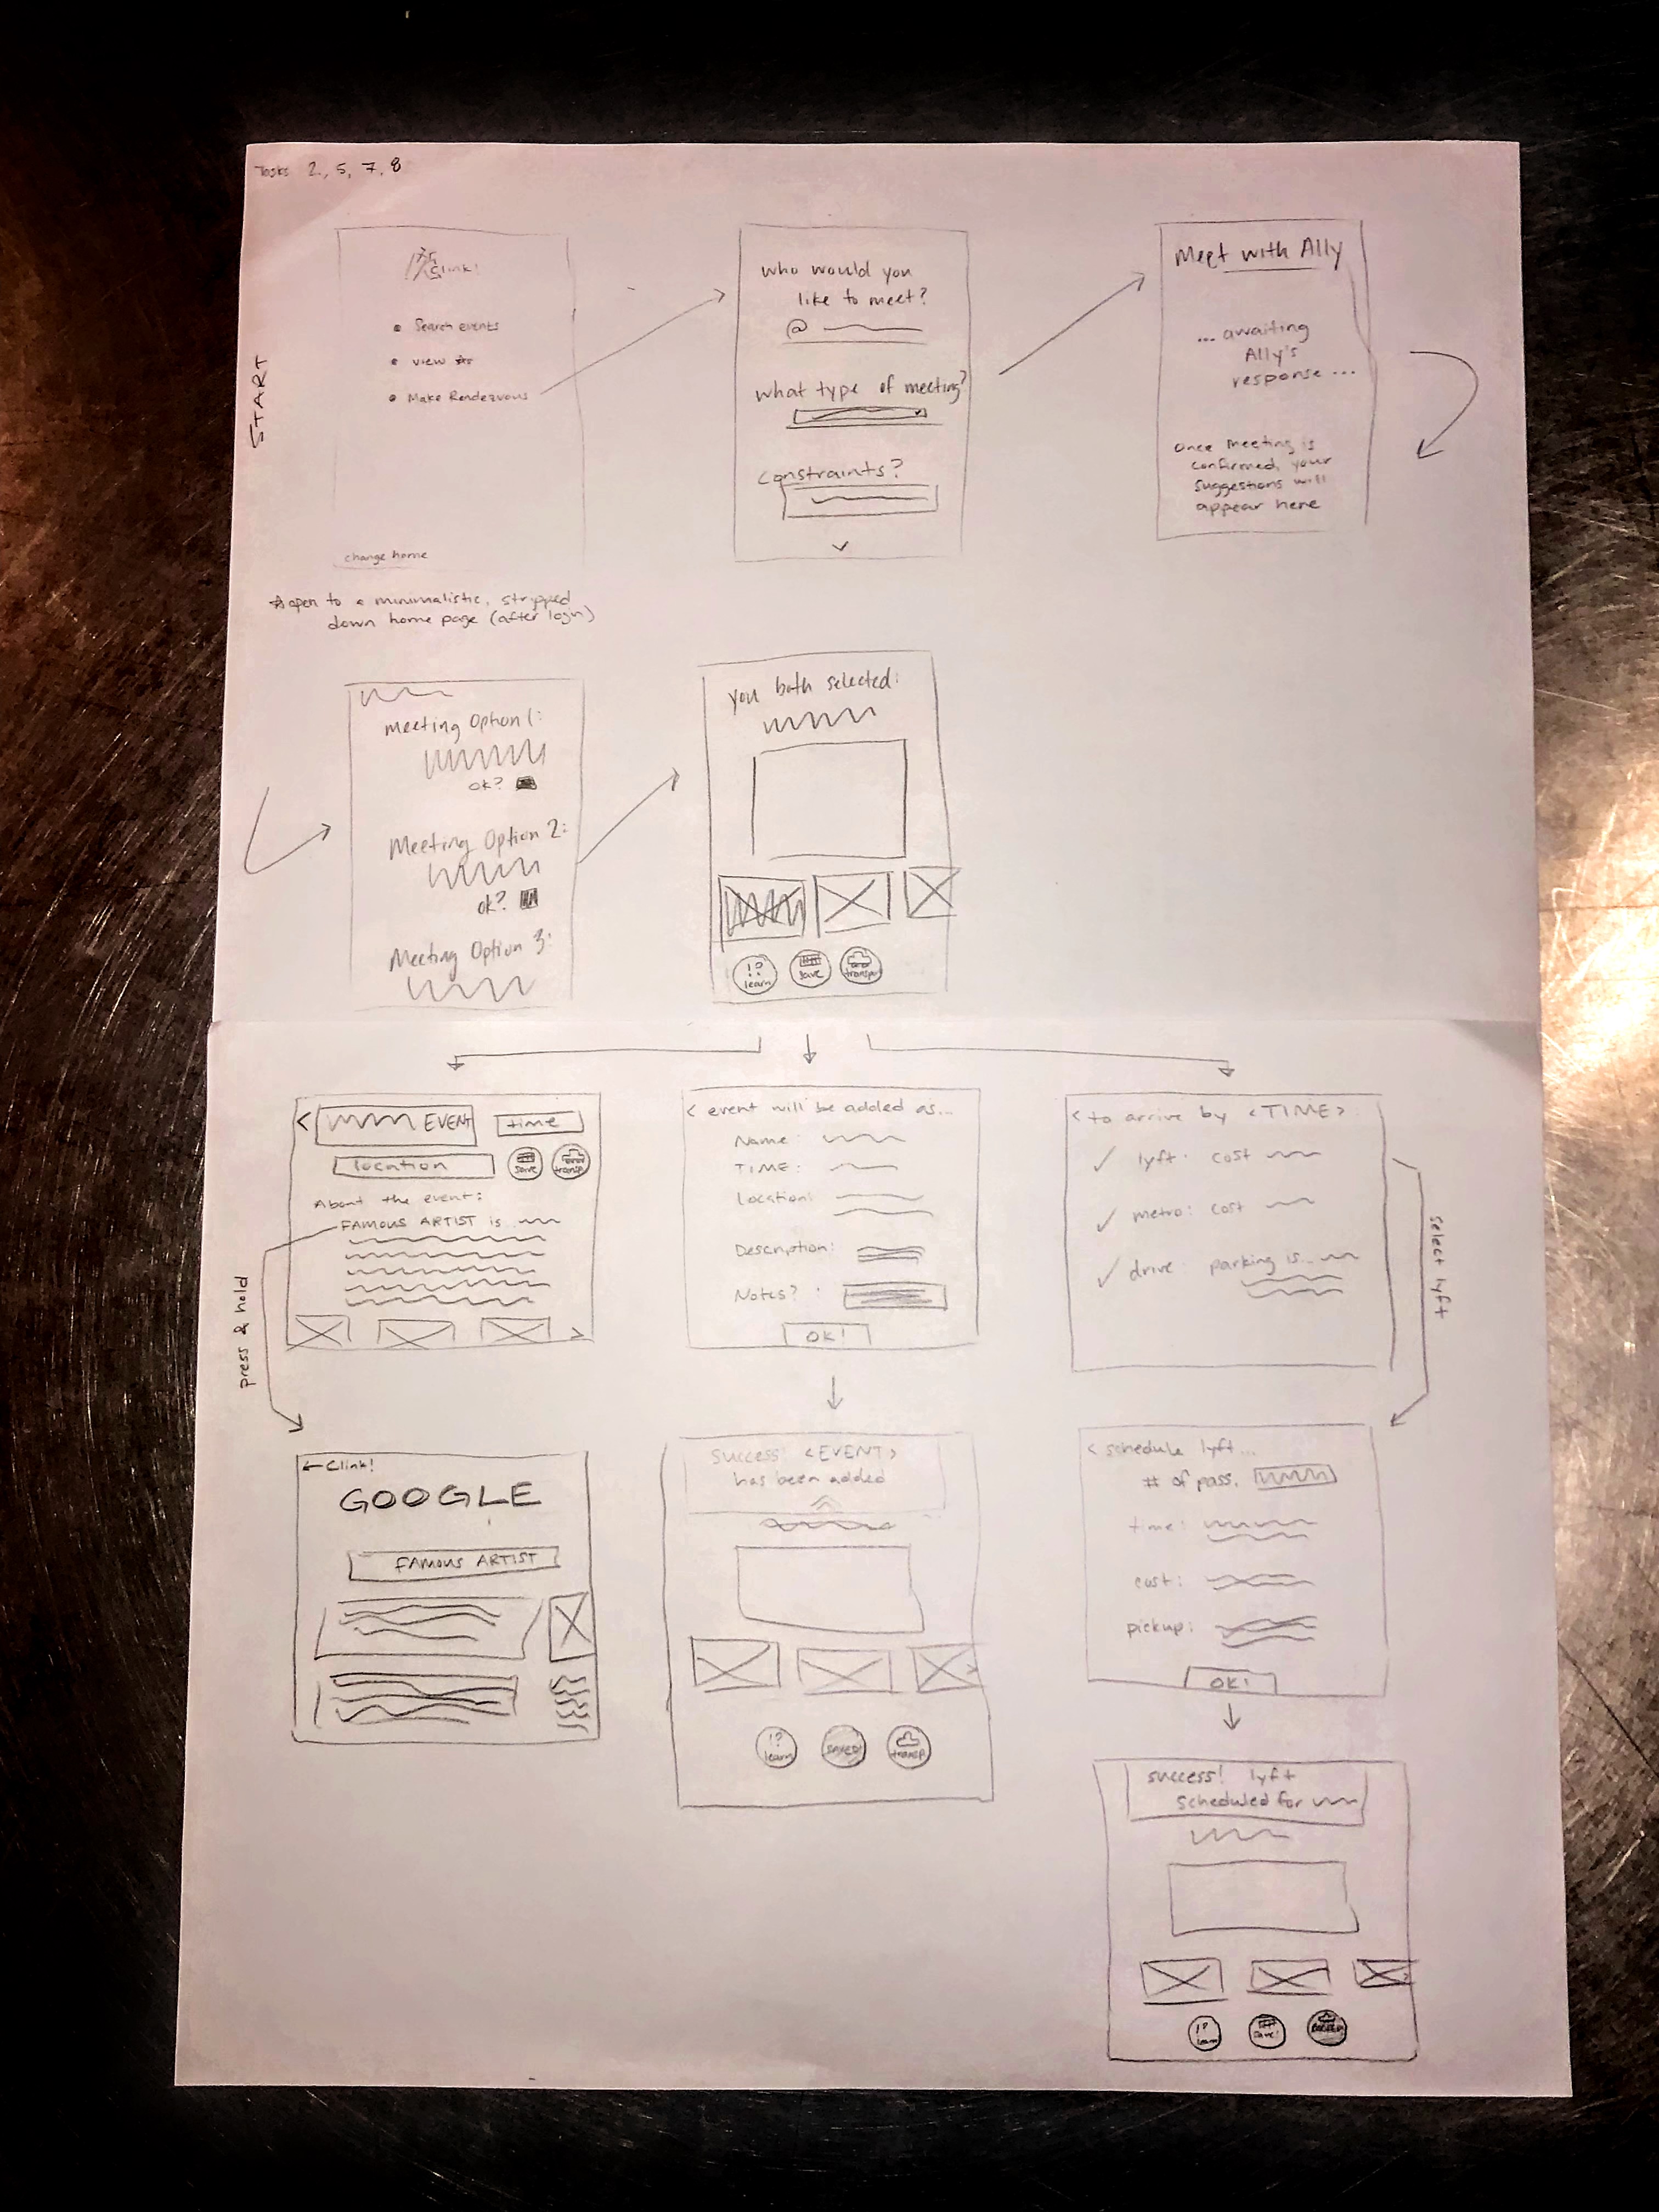 Tasks 2, 5, 7, 8
START
Clink!
Search events
view
Make Rendezvous
change home
open to a minimalistic, stripped
down home page (after login)
who would you
like to meet?
@
What type of meeting?
Constraints?
Meet with Ally
... awaiting
Ally's
response ...
Once meeting is
confirmed, your
suggestions will
appear here
Meeting Option 1:
ok?
Meeting Option 2:
ok?
Meeting Option 3:
you both selected:
!?
learn
save
transp
< EVENT
time
location
save
transp
About the event:
FAMOUS ARTIST is
press & hold
< event will be added as...
Name:
TIME:
Location:
Description:
Notes?
OK!
< to arrive by <TIME>
lyft: cost
metro: cost
drive: parking is...
select lyft
← Clink!
GOOGLE
FAMOUS ARTIST
success! <EVENT>
has been added
!?
learn
saved!
transp
< schedule lyft...
# of pass.
time:
cost:
pickup:
OK!
success! lyft
scheduled for
!?
learn
save!